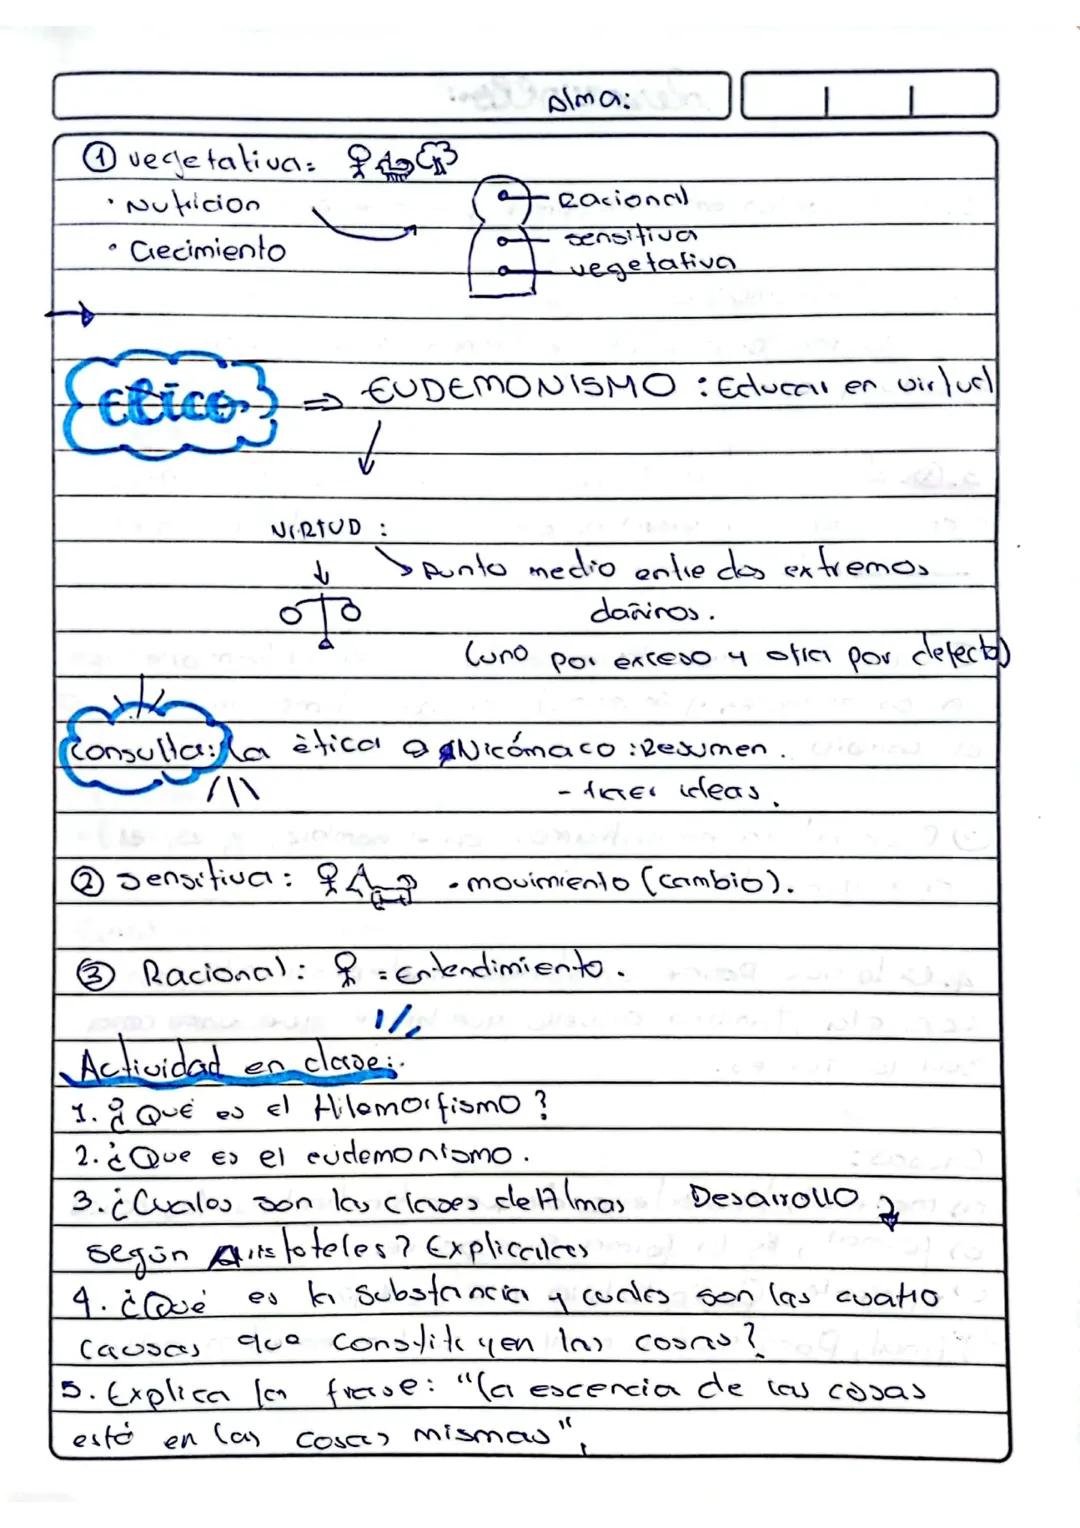 Alma:
① vegetativa:
· Nutricion
Racional
sensitiva
· Crecimiento
vegetativa
Etico
⇒ EUDEMONISMO : Educar en virtud
VIRTUD :
Punto medio entre dos extremos
dañinos.
(uno por exceso y otra por defecto)
Consulta: la ética a Nicómaco : Resumen.
- traer ideas.
② Sensitiva: · movimiento (cambio).
③ Racional: = Entendimiento.
Actividad en clase:.
1. ¿Qué es el Hilemorfismo?
2. ¿Que es el eudemonismo.
3. ¿Cuales son las clases de Almas Desarrollo
según Aristoteles? Explicalas
4. ¿Qué es la substancia y cuales son las cuatro
causas que constituyen las cosas?
5. Explica la frase: "la escencia de las cosas
está en las cosas mismas".